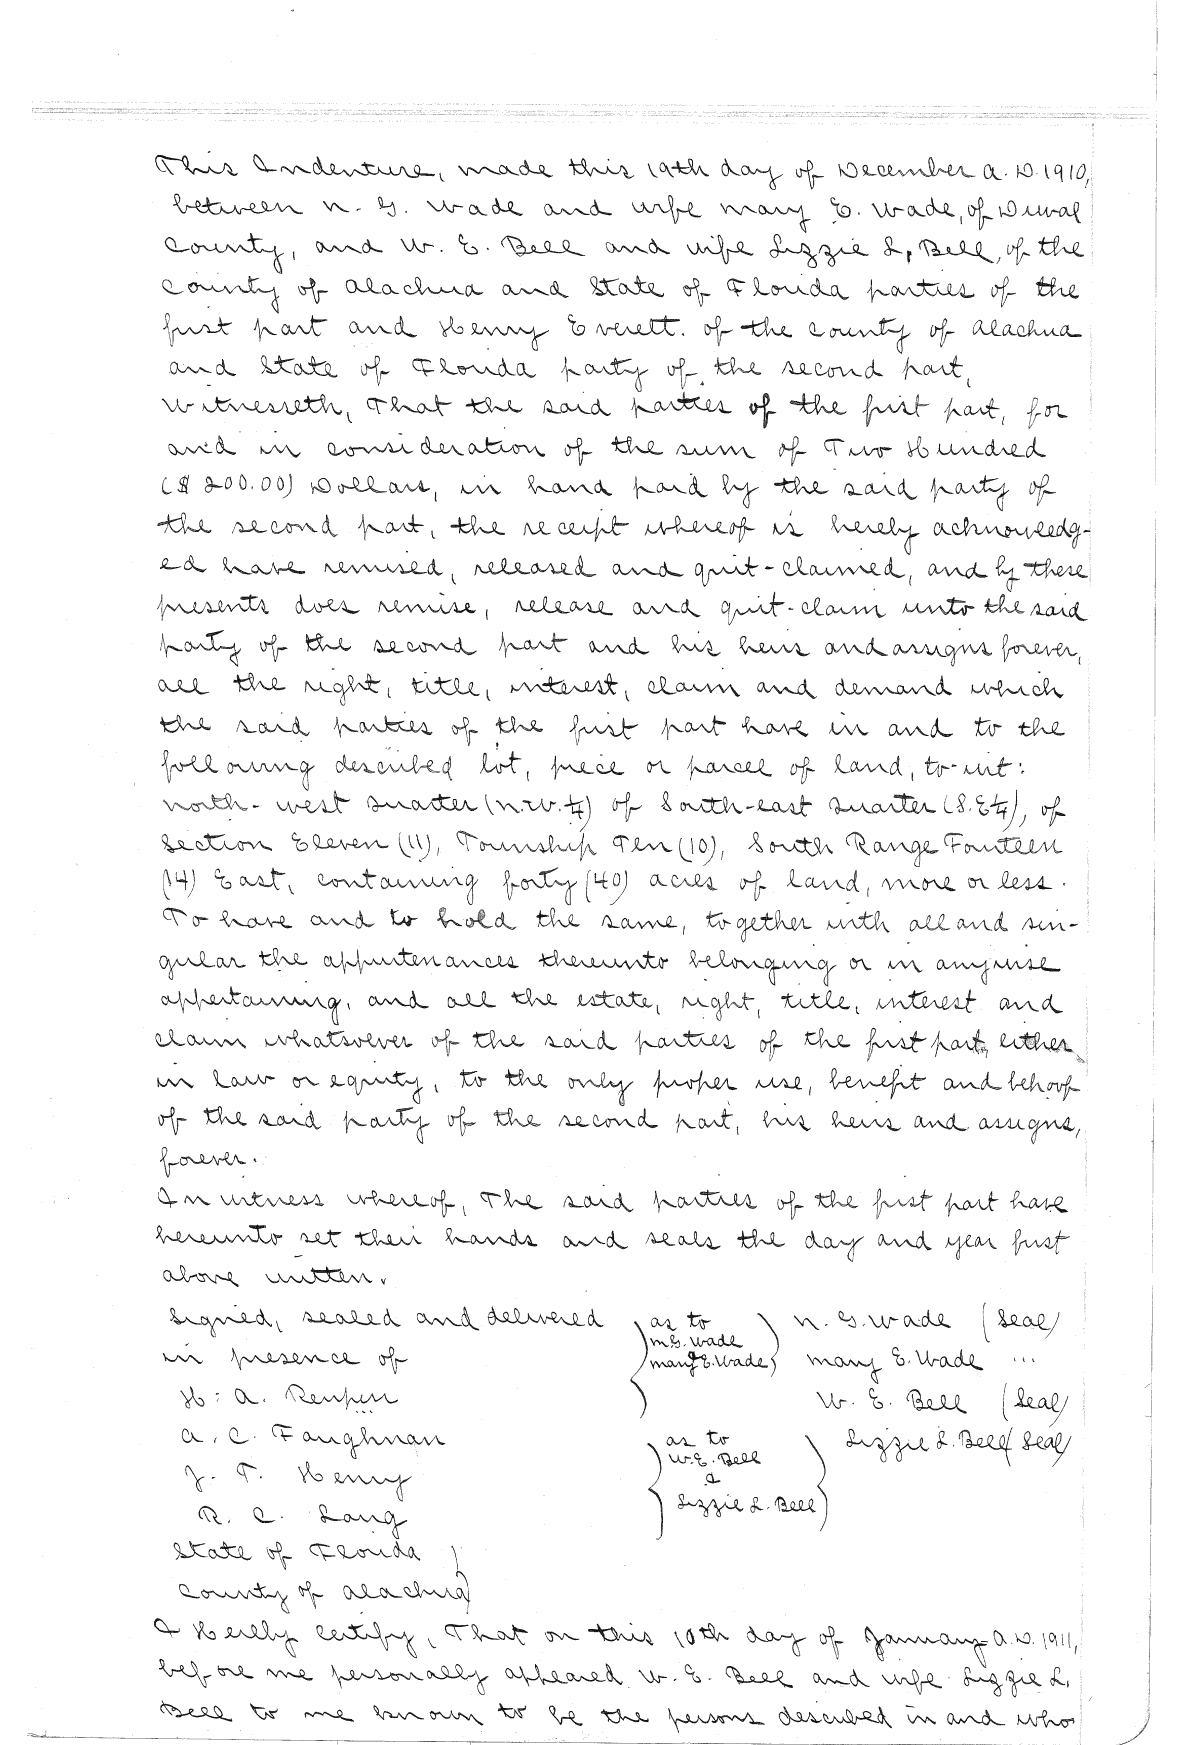 This Indenture, made this 19th day of December A.D. 1910,
between N. G. Wade and wife Mary E. Wade, of Duval
County, and W. E. Bell and wife Lizzie L, Bell, of the
County of Alachua and State of Florida parties of the
first part and Henry Everett. of the County of Alachua
and State of Florida party of the second part,
Witnesseth, That the said parties of the first part, for
and in consideration of the sum of Two Hundred
($200.00) Dollars, in hand paid by the said party of
the second part, the receipt whereof is hereby acknowledg-
ed have remised, released and quit-claimed, and by these
presents does remise, release and quit-claim unto the said
party of the second part and his heirs and assigns forever,
all the right, title, interest, claim and demand which
the said parties of the first part have in and to the
following described lot, piece or parcel of land, to-wit:
North-west Quarter (N.W.¼) of South-east Quarter (S.E¼), of
Section Eleven (11), Township Ten (10), South Range Fourteen
(14) East, containing forty (40) acres of land, more or less.
To have and to hold the same, together with all and sin-
gular the appurtenances thereunto belonging or in anywise
appertaining, and all the estate, right, title, interest and
claim whatsoever of the said parties of the first part, either
in law or equity, to the only proper use, benefit and behoof
of the said party of the second part, his heirs and assigns,
forever.
In witness whereof, The said parties of the first part have
hereunto set their hands and seals the day and year first
above written.
Signed, sealed and delivered ) as to ) N. G. Wade (Seal)
in presence of ) M G. Wade
Mary E. Wade ) Mary E. Wade ...
H. A. W. E. Bell (Seal)
A. C. Faughnan ) as to ) Lizzie L. Bell (Seal)
J. T. Henry W. E. Bell
&
R. C. Lang ) Lizzie L. Bell )
State of Florida )
County of Alachua )
I Hereby Certify, That on this 10th day of January A.D. 1911,
before me personally appeared W. E. Bell and wife Lizzie L.
Bell to me known to be the persons described in and who